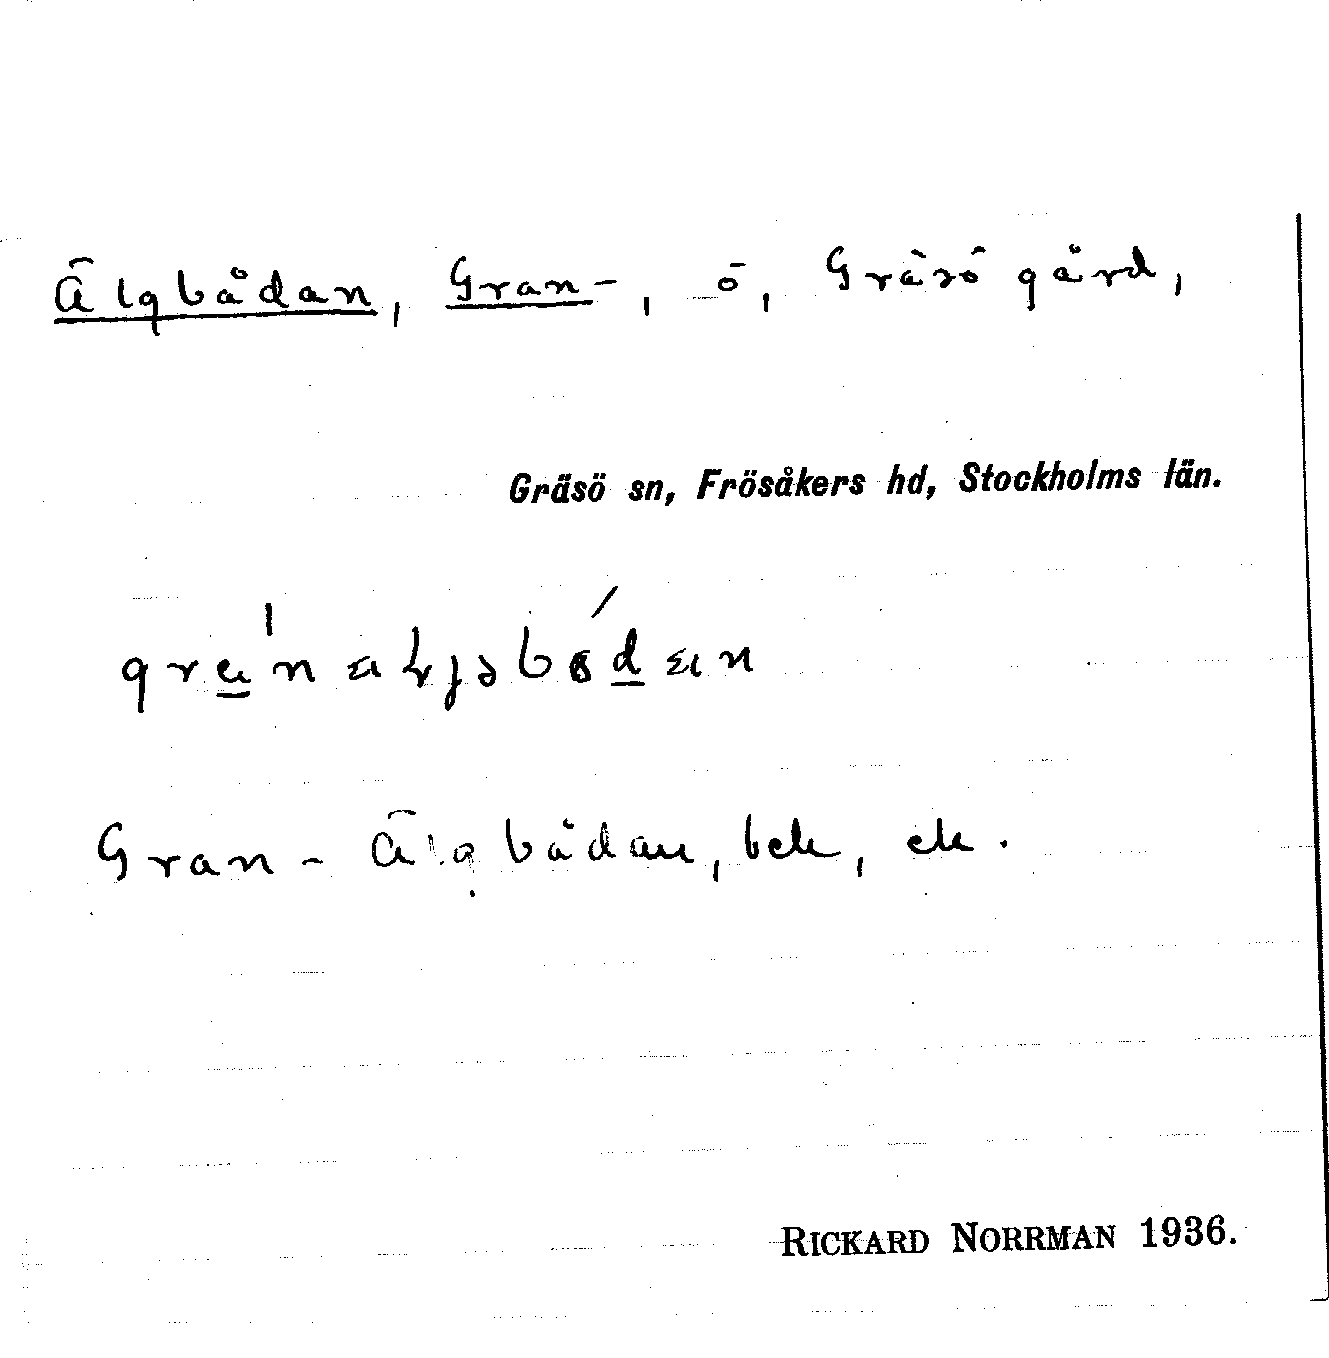 Älgbådan, Gran-, ö, Gräsö gård,
Gräsö sn, Frösåkers hd, Stockholms län.
Gran-Älgbådan, bek, ek.
RICKARD NORRMAN 1936.